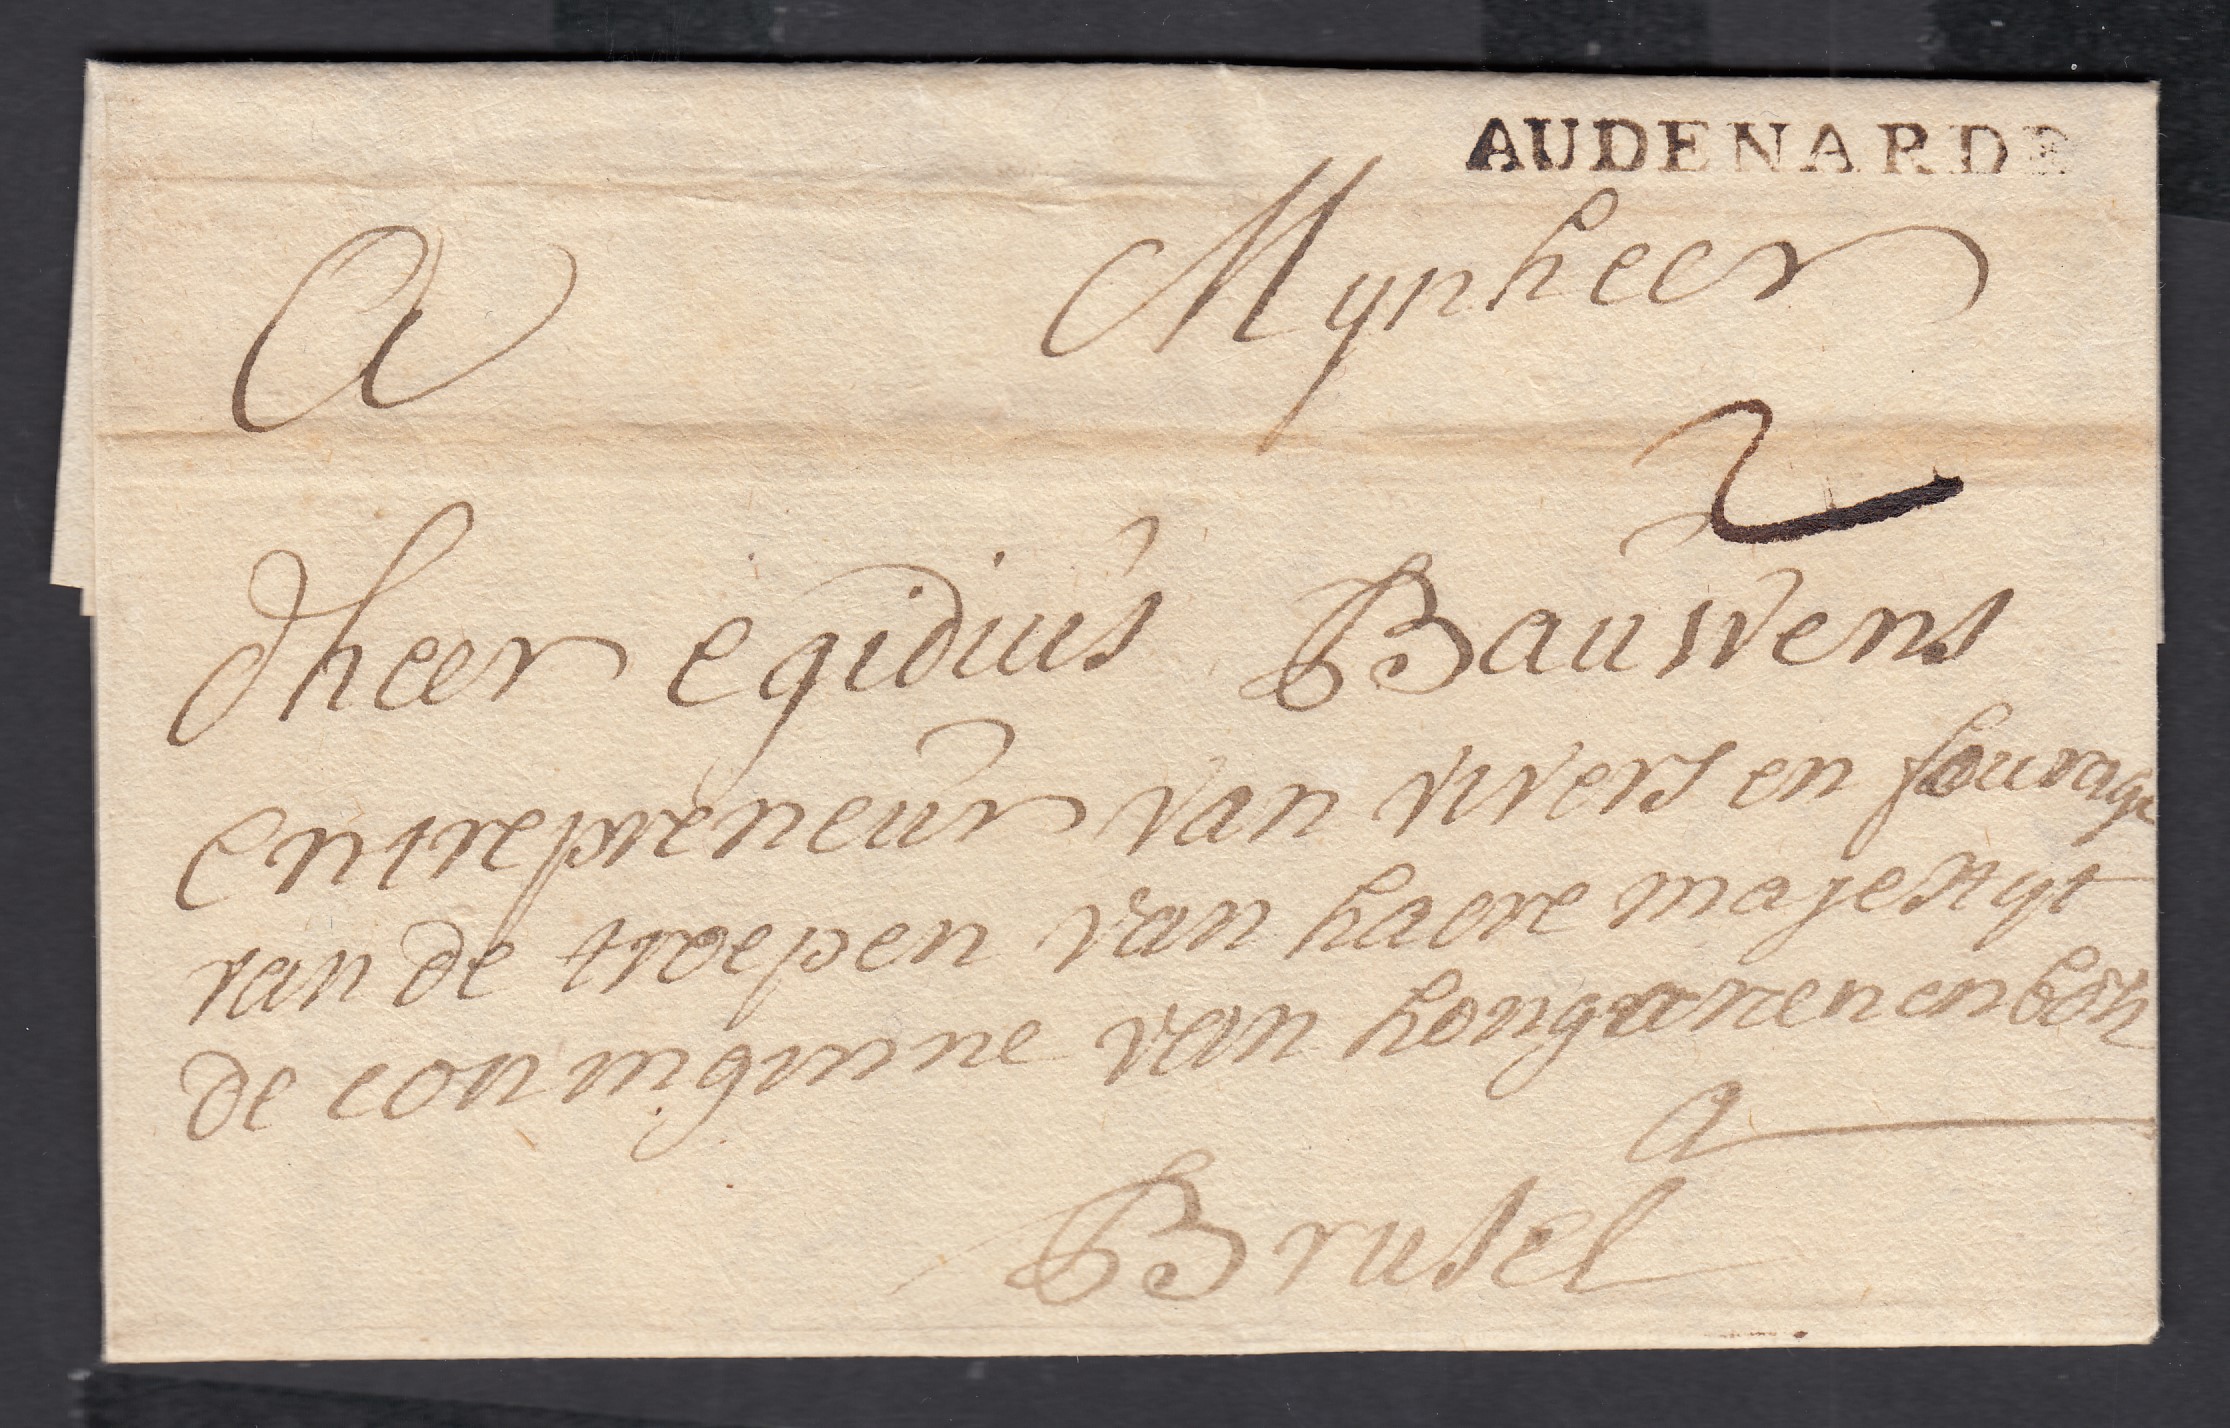 AUDENARDE
A Mynheer
2
dheer egidius Bauwens
entrepreneur van vivers en fourage
van de troepen van haere majestyt
de coninginne van hongarenen en boh
a
Brusel